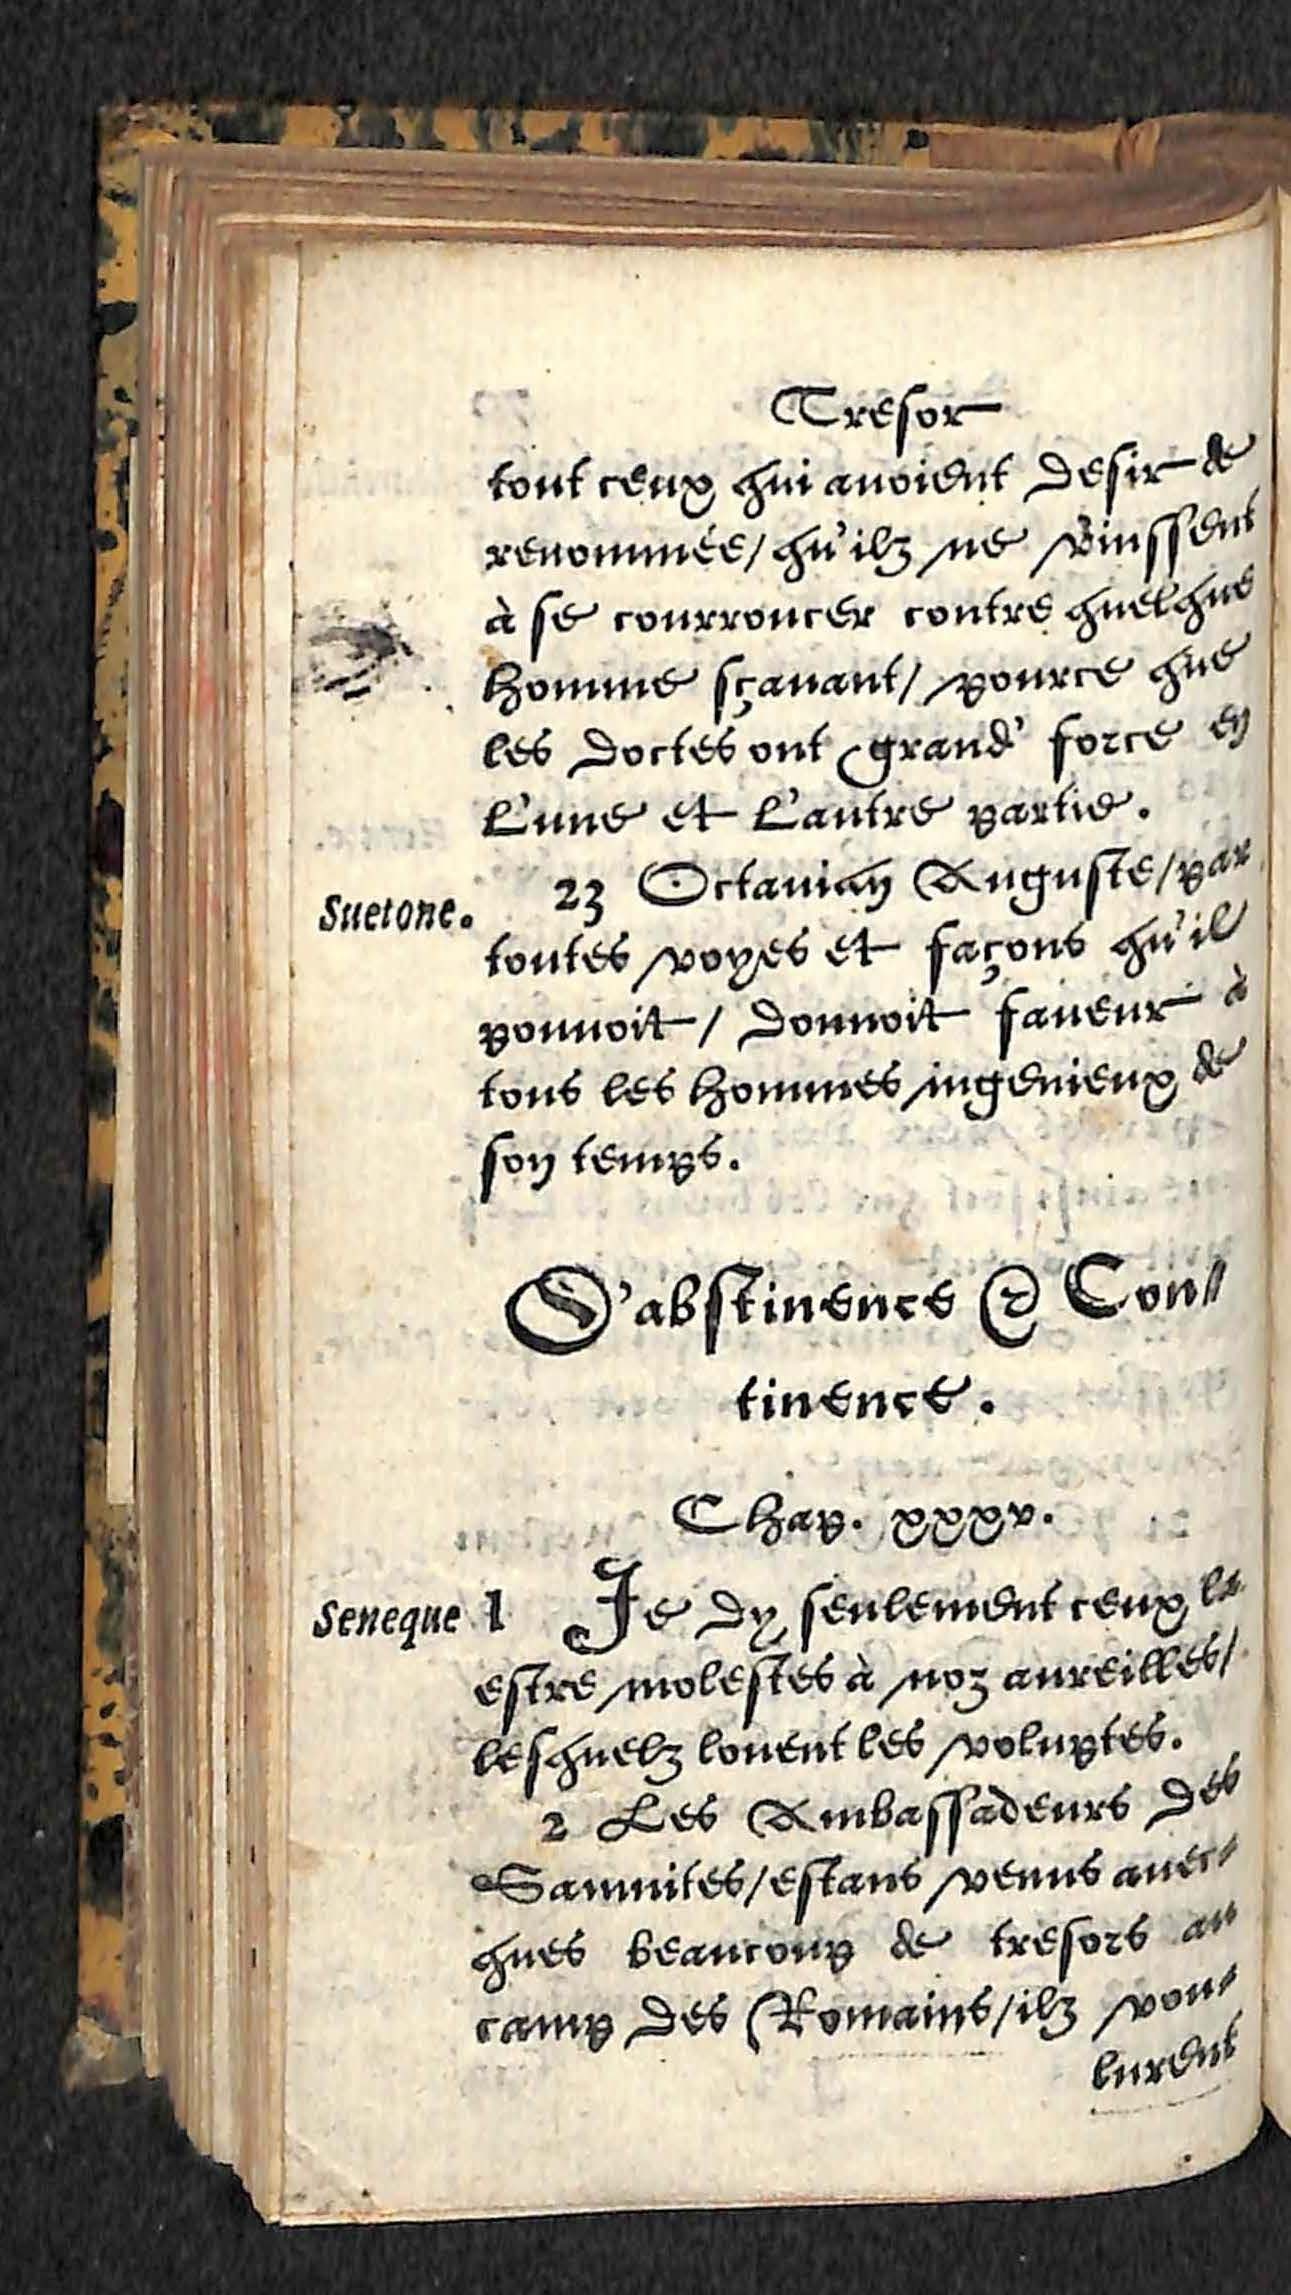 Tresor
tout ceux qui auoient desir de
renommée/ qu'ilz ne vinssent
à se courroucer contre quelque
homme sçauant/ pource que
les doctes ont grand' force en
l'une et l'autre partie.
Suetone.
23 Octauian Auguste/ par
toutes voyes et façons qu'il
pouuoit/ donnoit faueur à
tous les hommes ingenieux de
son temps.
D'abstinence & Con⸗
tinence.
Chap. xxxv.
Seneque
1 Je dy seulement ceux la
estre molestes à noz aureilles/
lesquelz louent les voluptes.
2 Les Ambassadeurs des
Samnites/ estans venus auec⸗
ques beaucoup de tresors au
camp des Romains/ ilz vou⸗
lurent